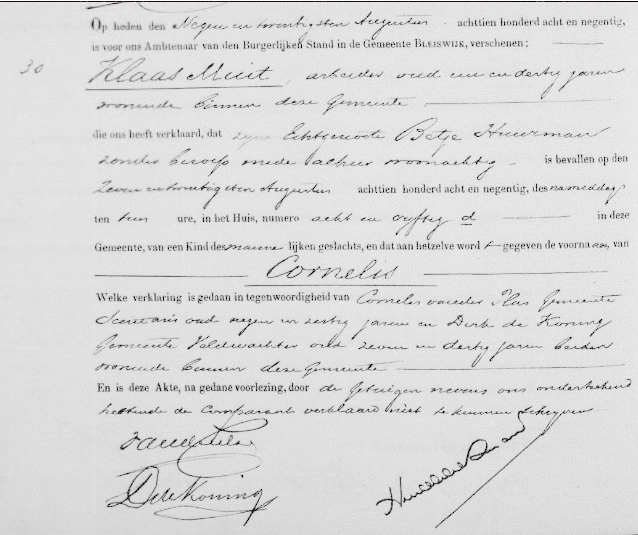 Op heden den Negen en twintigsten Augustus achttien honderd acht en negentig,
is voor ons Ambtenaar van den Burgerlijken Stand in de Gemeente BLEISWIJK, verschenen:
30
Klaas Muit, arbeider oud een en dertig jaren
wonende binnen deze Gemeente
die ons heeft verklaard, dat zijne Echtgenoote Betje Huurman
zonder beroep mede alhier woonachtig is bevallen op den
Zeven en twintigsten Augustus achttien honderd acht en negentig, des nameddags
ten tien ure, in het Huis, numero acht en vijftig d in deze
Gemeente, van een Kind des mannelijken geslachts, en dat aan hetzelve word t gegeven de voornaam, van
Cornelis
Welke verklaring is gedaan in tegenwoordigheid van Cornelis van der Plas Gemeente
Secretaris oud negen en dertig jaren en Dirk de Koning
Gemeente Veldwachter oud zeven en dertig jaren beiden
wonende binnen deze Gemeente
En is deze Akte, na gedane voorlezing, door de Getuigen nevens ons onderteekend
hebbende de Comparant verklaard niet te kunnen schrijven
DdeKoning